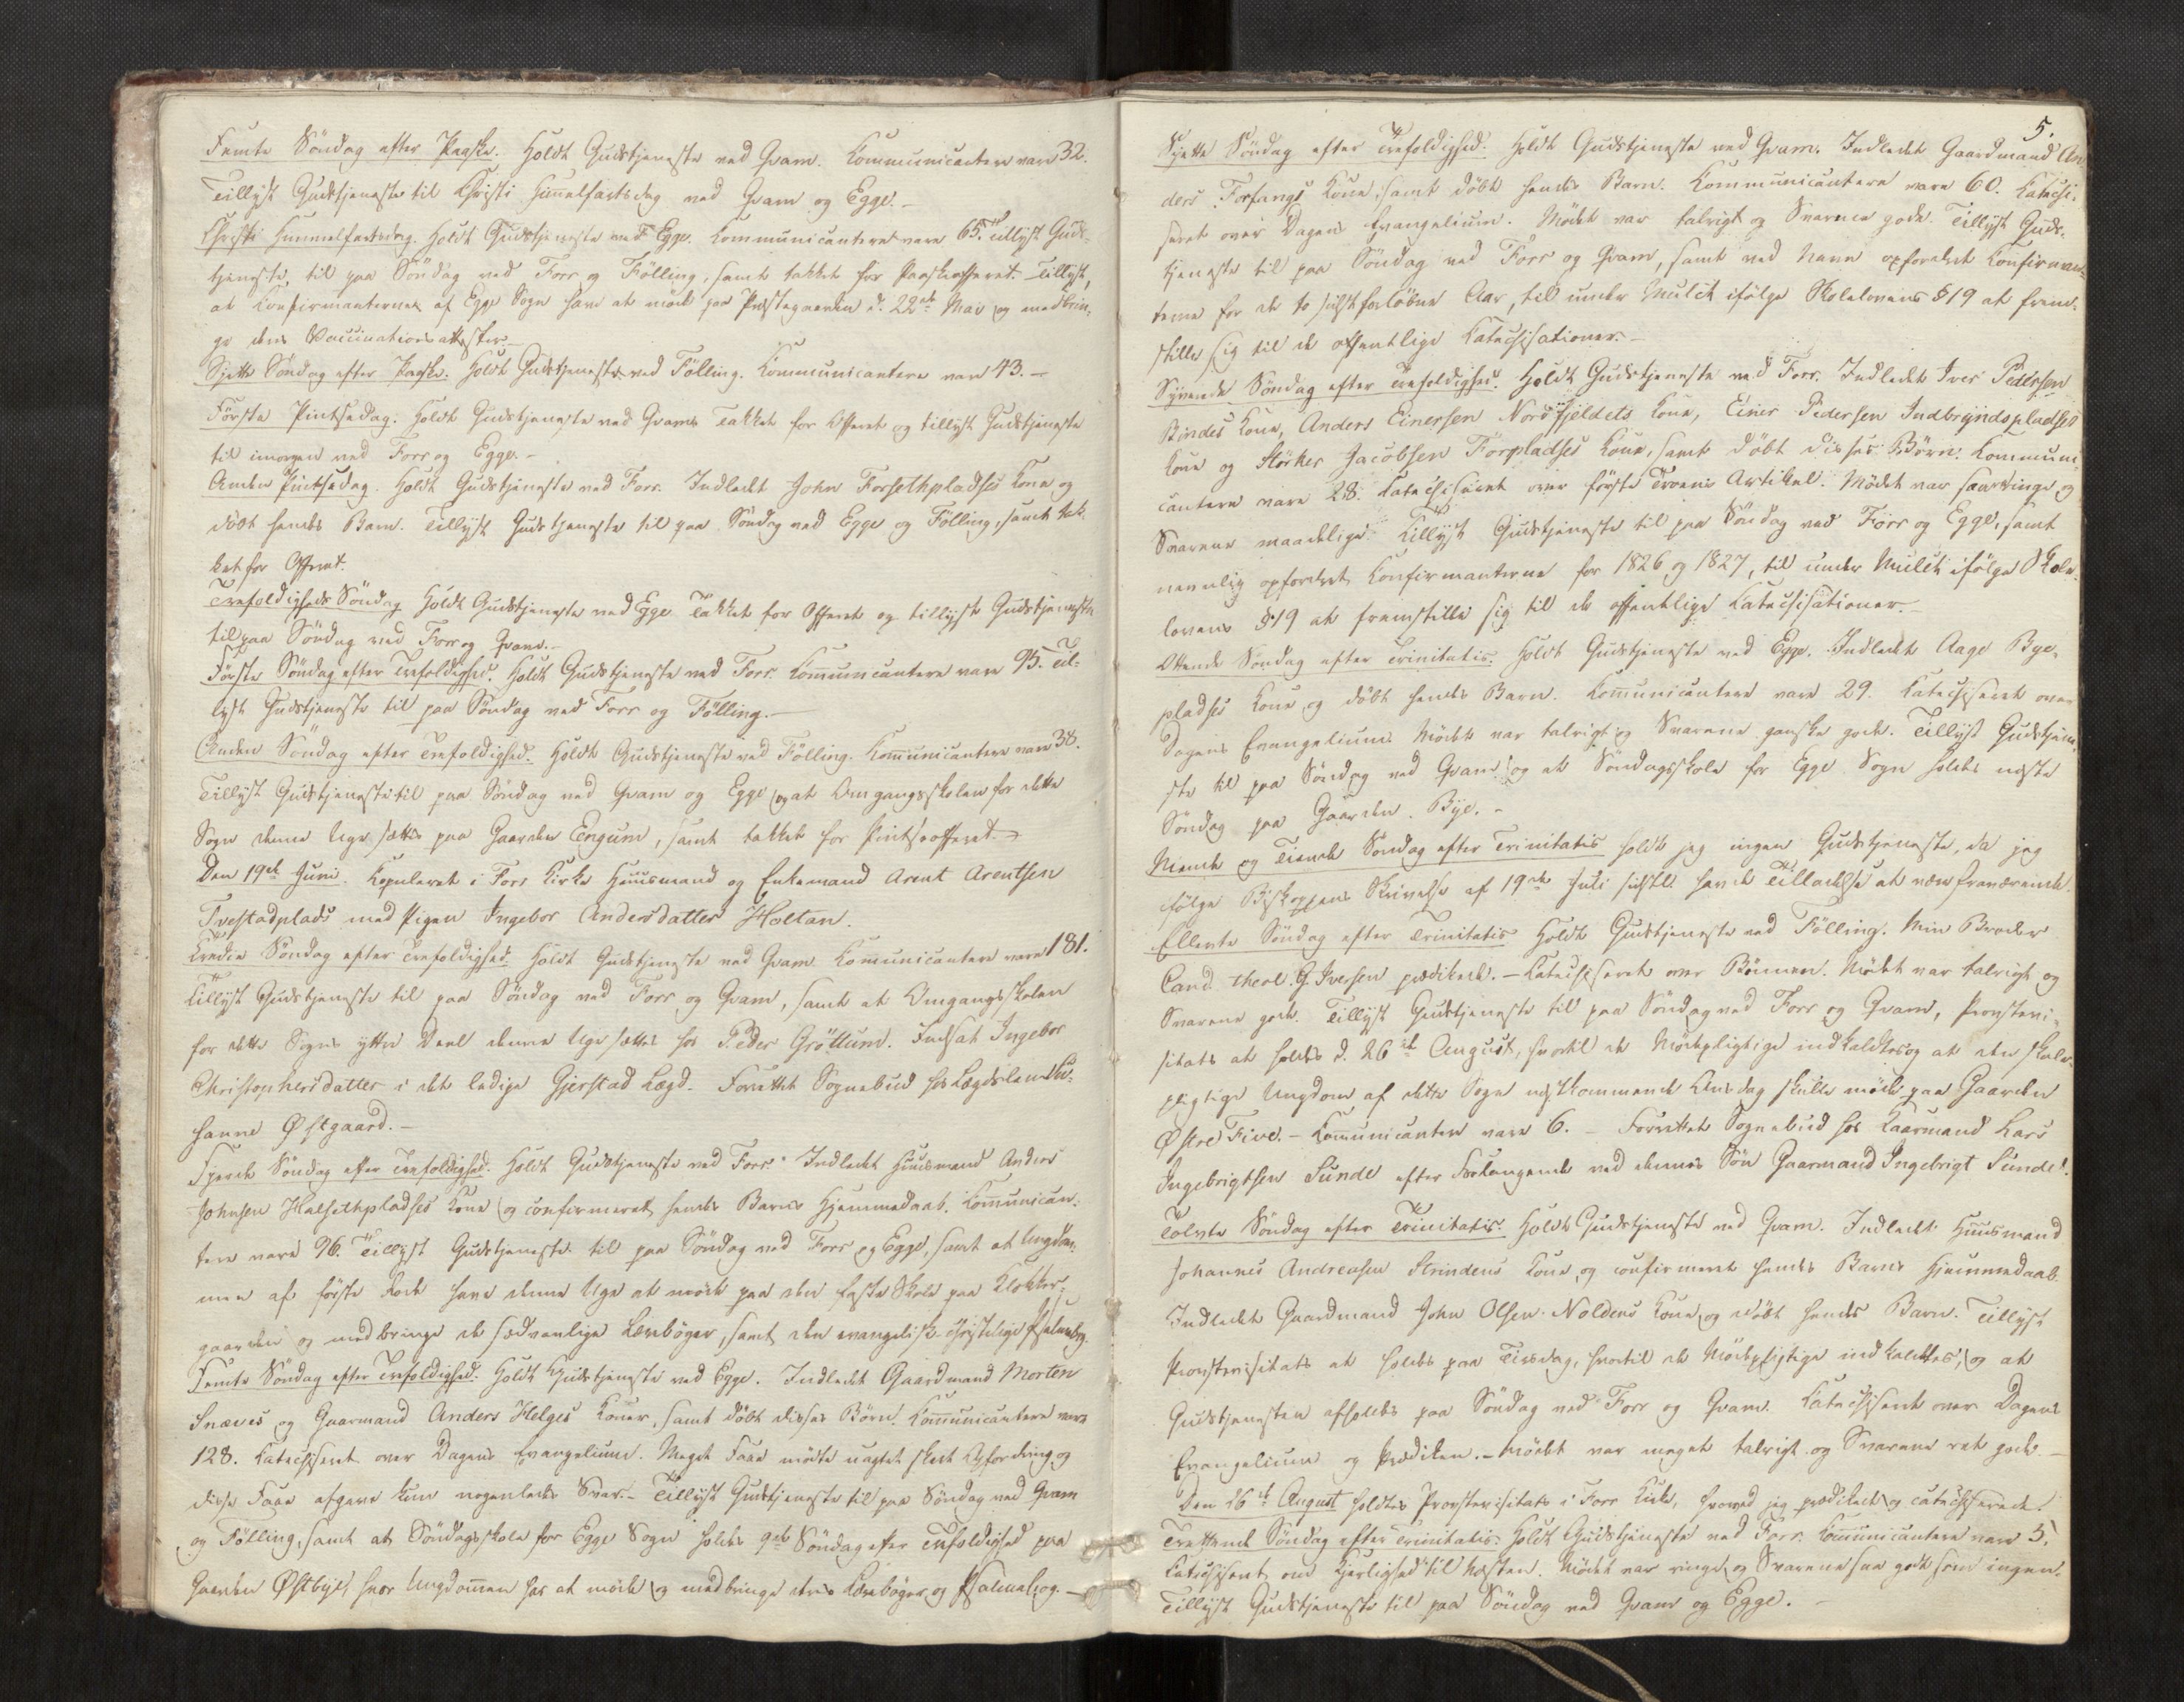 Femte Söndag efter Paaske. Holdt Gudstjeneste ved Qvam. Kommunicantere vare 32.
Tillyst Gudstjeneste til Christi Himmelfartsdag ved Qvam og Egge. –
Christi Himmelfartsdag. Holdt Gudstjeneste ved Egge. Kommunicantere vare 65. Tillyst Guds-
tjeneste til paa Söndag ved Forr og Fölling, samt takket for Paaskeofferet. Tillyst,
at Confirmanterne af Egge Sogn have at möde paa Præstegaarden d. 22de Mai og medbrin-
ge deres Vaccinationsattester. –
Sjette Söndag efter Paaske. Holdt Gudstjeneste ved Fölling. Kommunicantere vare 43. –
Förste Pintsedag. Holdt Gudstjeneste ved Qvam. Takket for Offeret og tillyst Gudstjeneste
til imorgen ved Forr og Egge. –
Anden Pintsedag. Holdt Gudstjeneste ved Forr. Indledet John Forsethpladses Kone og
döbt hendes Barn. Tillyst Gudstjeneste til paa Söndag ved Egge og Fölling, samt tak-
ket for Offeret.
Trefoldigheds Söndag Holdt Gudstjeneste ved Egge Takket for Offeret og tillyst Gudstjeneste
til paa Söndag ved Forr og Qvam. –
Förste Söndag efter Trefoldighed. Holdt Gudstjeneste ved Forr. Kommunicantere vare 95. Til-
lyst Gudstjeneste til paa Söndag ved Forr og Fölling. –
Anden Söndag efter Trefoldighed. Holdt Gudstjeneste ved Fölling. Kommunicantere vare 38.
Tillyst Gudstjeneste til paa Söndag ved Qvam og Egge og at Omgangsskolen for dette
Sogn denne Uge sættes paa Gaarden Engum, samt takket for Pintseofferet. –
Den 19de Juni. Kopuleret i Forr Kirke Huusmand og Enkemand Arent Arentsen
Tvestadplads med Pigen Ingebor Andersdatter Holtan.
Tredie Söndag efter Trefoldighed. Holdt Gudstjeneste ved Qvam Kommunicantere vare 181.
Tillyst Gudstjeneste til paa Söndag ved Forr og Qvam, samt at Omgangsskolen
for dette Sogns yttre Deel denne Uge sættes hos Peder Gröttum. Indsat Ingebor
Christophersdatter i det ledige Gjerstad Lægd. Forrettet Sognebud hos Lægdslem Su-
sanne Østgaard. –
Fjerde Söndag efter Trefoldighed. Holdt Gudstjeneste ved Forr. Indledet Huusmand Anders
Johnsen Halsethpladses Kone og confirmeret hendes Barns Hjemmedaab. Kommunican-
tere vare 96. Tillyst Gudstjeneste til paa Söndag ved Forr og Egge, samt at Ungdom-
men af förste Rode have denne Uge at möde paa den faste Skole paa Klokker-
gaarden og medbringe de sædvanlige Lærebøger, samt den evangelisk-christelige Psalmebog.
Femte Söndag efter Trefoldighed. Holdt Gudstjeneste ved Egge. Indledet Gaardmand Morten
Snæves og Gaarmand Anders Helges Koner, samt döbt disses Börn. Kommunicantere vare
128. Katechiseret over Dagens Evangelium. Meget Faae mödte uagtet skeet Opfordring og
disse Faae afgave kun nogenledes Svar. – Tillyst Gudstjeneste til paa Söndag ved Qvam
og Fölling, samt at Söndagsskole for Egge Sogn holdes 9de Söndag efter Trefoldighed paa
Gaarden Østbye, hvor Ungdommen har at möde og medbringe deres Lærebøger og Psalmebog. –
5.
Sjette Söndag efter Trefoldighed. Holdt Gudstjeneste ved Qvam. Indledet Gaardmand An-
ders Forfangs Kone, samt döbt hendes Barn. Kommunicantere vare 60. Katechi-
seret over Dagens Evangelium. Mödet var talrigt og Svarene gode. Tillyst Guds-
tjeneste til paa Söndag ved Forr og Qvam, samt ved Navn opfordret Konfirman-
terne for de to sidstforløbne Aar, til under Mulct ifölge Skolelovens § 19 at frem-
stille sig til de offentlige Katechisationer. –
Syvende Söndag efter Trefoldighed. Holdt Gudstjeneste ved Forr. Indledet Iver Pedersen
Bindes Kone, Anders Einersen Nordfjeldets Kone, Einer Pedersen Indbryndspladses
Kone og Störker Jacobsen Forpladses Kone, samt döbt disses Börn. Kommuni-
cantere vare 28. Katechiseret over förste Troens Artikel. Mödet var saare ringe og
Svarene maadelige. Tillyst Gudstjeneste til paa Söndag ved Forr og Egge, samt
navnlig opfordret Konfirmanterne for 1826 og 1827, til under Mulct ifölge Skole-
lovens § 19 at fremstille sig til de offentlige Katechisationer. –
Ottende Söndag efter Trinitatis. Holdt Gudstjeneste ved Egge. Indledet Aage Bye-
pladses Kone og döbt hendes Barn. Kommunicantere vare 29. Katechiseret over
Dagens Evangelium. Mödet var talrigt og Svarene ganske gode. Tillyst Gudstjene-
ste til paa Söndag ved Qvam og at Söndagsskole for Egge Sogn holdes næste
Söndag paa Gaarden Bye. –
Niende og Tiende Söndag efter Trinitatis holdt jeg ingen Gudstjeneste, da jeg
ifölge Biskoppens Skrivelse af 19de Juli sidstl. havde Tilladelse at være fraværende.
Ellevte Söndag efter Trinitatis Holdt Gudstjeneste ved Fölling. Min Broder
Cand. theol. G. Iversen prædikede. – Katechiseret over Bönnen. Mödet var talrigt og
Svarene gode. Tillyst Gudstjeneste til paa Söndag ved Forr og Qvam, Provstevi-
sitats at holdes d. 26de August, hvortil de Mödepligtige indkaldtes og at den skole-
pligtige Ungdom af dette Sogn nestkommende Onsdag skulle möde paa Gaarden
Østre Five. – Kommunicantere vare 6. – Forrettet Sognebud hos Kaarmand Lars
Ingebrigtsen Sunde efter Forlangende ved dennes Sön Gaarmand Ingebrigt Sunde.
Tolvte Söndag efter Trinitatis. Holdt Gudstjeneste ved Qvam. Indledet Huusmand
Johannes Andreasen Strindens Kone, og confirmeret hendes Barns Hjemmedaab.
Indledet Gaardmand John Olsen Noldens Kone, og döbt hendes Barn. Tillyst
Provstevisitats at holdes paa Tirsdag, hvortil de Mödepligtige indkaldtes, og at
Gudstjenesten afholdes paa Söndag ved Forr og Qvam. Katechiseret over Dagens
Evangelium og Prædiken. – Mödet var meget talrigt og Svarene ret gode. –
Den 26de August holdtes Provstevisitats i Forr Kirke, hvorved jeg prædikede og catechiserede.
Trettende Söndag efter Trinitatis. Holdt Gudstjeneste ved Forr. Kommunicantere vare 5.
Katechiseret om Kjerlighed til Næsten. Mödet var ringe og Svarene saa godt som ingen.
Tillyst Gudstjeneste til paa Söndag ved Qvam og Egge. –